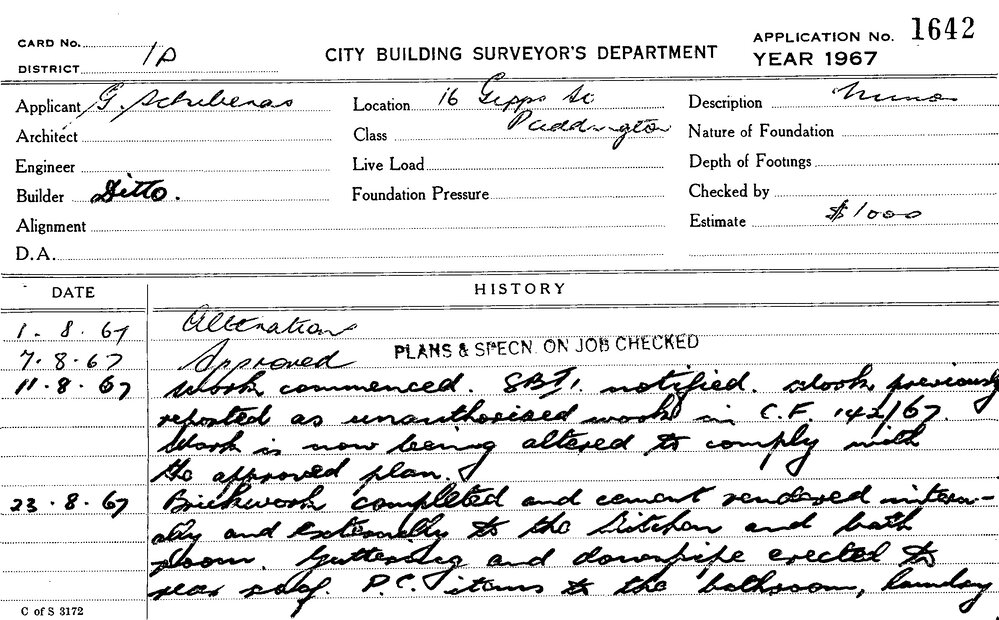 CARD No.
DISTRICT 1D
CITY BUILDING SURVEYOR'S DEPARTMENT
APPLICATION No. 1642
YEAR 1967
Applicant G.
Architect
Engineer
Builder Ditto.
Alignment
D.A.
Location 16 Gipps St
Paddington
Class
Live Load
Foundation Pressure
Description Minor
Nature of Foundation
Depth of Footings
Checked by
Estimate $1000
DATE HISTORY
1. 8. 67 Alterations
7. 8. 67 Approved PLANS & SPECN. ON JOB CHECKED
11. 8. 67 Work commenced. notified. Work previously
reported as unauthorised work in C.F. 142/67.
Work is now being altered to comply with
the approved plan.
23. 8. 67 Brickwork completed and cement rendered intern-
ally and externally to the kitchen and bath
room. Guttering and downpipe erected to
rear roof. P.C. items to the bathroom, laundry
C of S 3172